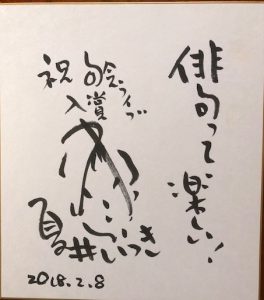 俳句って楽しい!
祝 句会ライブ
入賞
夏井いつき
2018.2.8